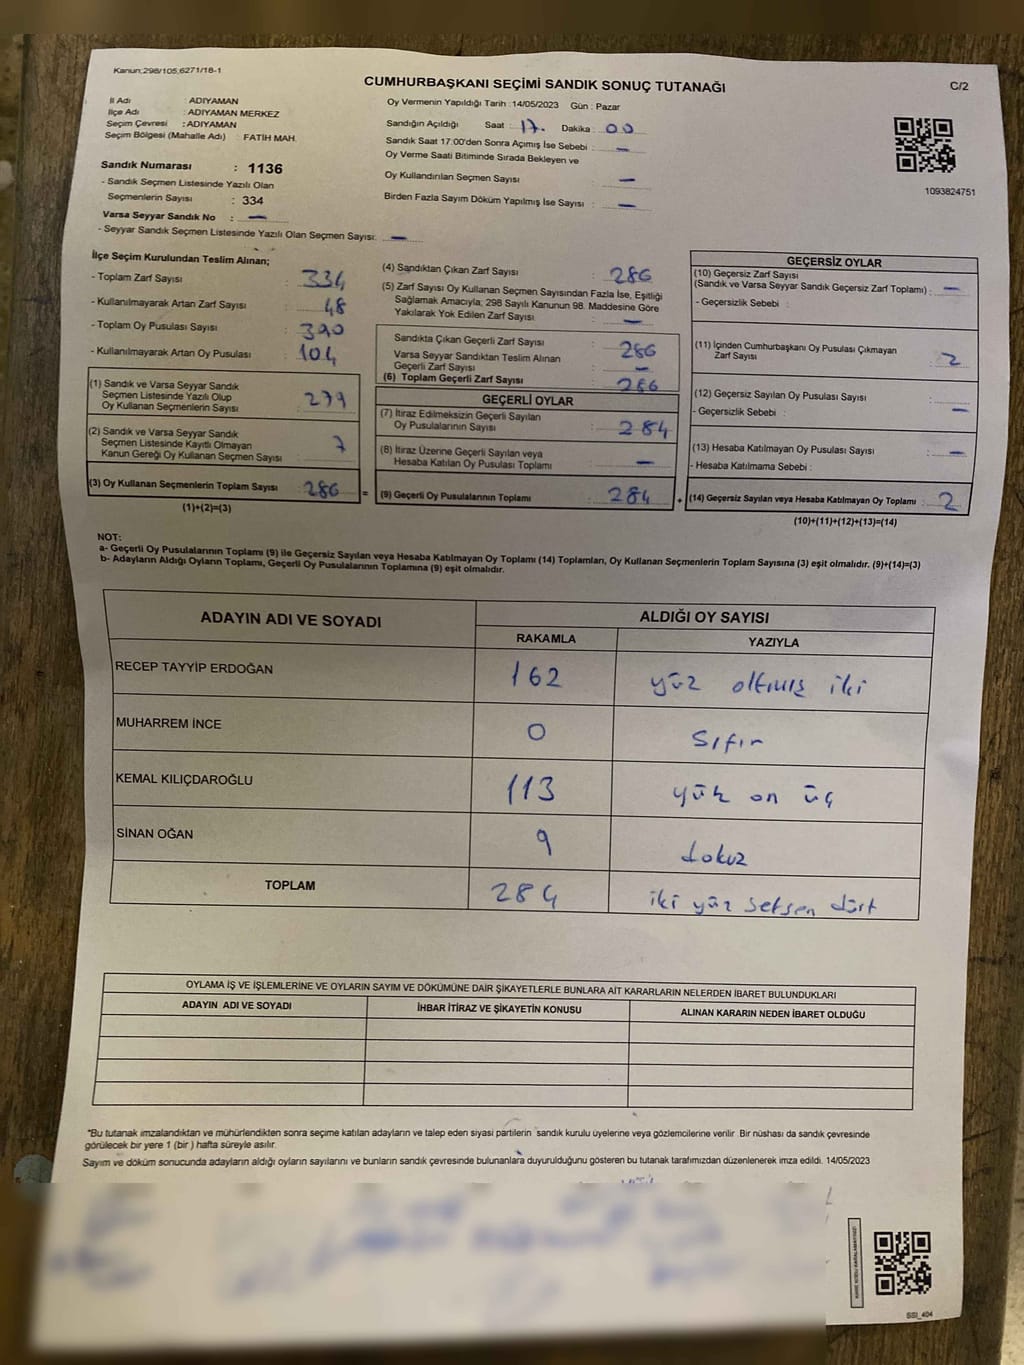 Kanun;298/105;6271/18-1
CUMHURBAŞKANI SEÇİMİ SANDIK SONUÇ TUTANAĞI
C/2
İl Adı : ADIYAMAN
İlçe Adı : ADIYAMAN MERKEZ
Seçim Çevresi : ADIYAMAN
Seçim Bölgesi (Mahalle Adı) : FATİH MAH.
Oy Vermenin Yapıldığı Tarih : 14/05/2023 Gün : Pazar
Sandığın Açıldığı Saat : 17. Dakika : 00
Sandık Saat 17.00'den Sonra Açımış İse Sebebi : —
Oy Verme Saati Bitiminde Sırada Bekleyen ve
Oy Kullandırılan Seçmen Sayısı —
Birden Fazla Sayım Döküm Yapılmış İse Sayısı : —
1093824751
Sandık Numarası : 1136
- Sandık Seçmen Listesinde Yazılı Olan
Seçmenlerin Sayısı : 334
Varsa Seyyar Sandık No : —
- Seyyar Sandık Seçmen Listesinde Yazılı Olan Seçmen Sayısı: —
İlçe Seçim Kurulundan Teslim Alınan;
- Toplam Zarf Sayısı : 334
- Kullanılmayarak Artan Zarf Sayısı : 48
- Toplam Oy Pusulası Sayısı : 390
- Kullanılmayarak Artan Oy Pusulası : 104
(1) Sandık ve Varsa Seyyar Sandık
Seçmen Listesinde Yazılı Olup
Oy Kullanan Seçmenlerin Sayısı : 279
(2) Sandık ve Varsa Seyyar Sandık
Seçmen Listesinde Kayıtlı Olmayan
Kanun Gereği Oy Kullanan Seçmen Sayısı : 7
(3) Oy Kullanan Seçmenlerin Toplam Sayısı : 286 =
(1)+(2)=(3)
(4) Sandıktan Çıkan Zarf Sayısı : 286
(5) Zarf Sayısı Oy Kullanan Seçmen Sayısından Fazla İse, Eşitliği
Sağlamak Amacıyla; 298 Sayılı Kanunun 98. Maddesine Göre
Yakılarak Yok Edilen Zarf Sayısı : —
Sandıkta Çıkan Geçerli Zarf Sayısı : 286
Varsa Seyyar Sandıktan Teslim Alınan
Geçerli Zarf Sayısı : —
(6) Toplam Geçerli Zarf Sayısı : 286
GEÇERLİ OYLAR
(7) İtiraz Edilmeksizin Geçerli Sayılan
Oy Pusulalarının Sayısı : 284
(8) İtiraz Üzerine Geçerli Sayılan veya
Hesaba Katılan Oy Pusulası Toplamı : —
(9) Geçerli Oy Pusulalarının Toplamı : 284 +
GEÇERSİZ OYLAR
(10) Geçersiz Zarf Sayısı
(Sandık ve Varsa Seyyar Sandık Geçersiz Zarf Toplamı) : —
- Geçersizlik Sebebi :
(11) İçinden Cumhurbaşkanı Oy Pusulası Çıkmayan
Zarf Sayısı : 2
(12) Geçersiz Sayılan Oy Pusulası Sayısı : —
- Geçersizlik Sebebi :
(13) Hesaba Katılmayan Oy Pusulası Sayısı : —
- Hesaba Katılmama Sebebi :
(14) Geçersiz Sayılan veya Hesaba Katılmayan Oy Toplamı : 2
(10)+(11)+(12)+(13)=(14)
NOT:
a- Geçerli Oy Pusulalarının Toplamı (9) ile Geçersiz Sayılan veya Hesaba Katılmayan Oy Toplamı (14) Toplamları, Oy Kullanan Seçmenlerin Toplam Sayısına (3) eşit olmalıdır. (9)+(14)=(3)
b- Adayların Aldığı Oyların Toplamı, Geçerli Oy Pusulalarının Toplamına (9) eşit olmalıdır.
ADAYIN ADI VE SOYADI
ALDIĞI OY SAYISI
RAKAMLA YAZIYLA
RECEP TAYYİP ERDOĞAN 162 yüz altmış iki
MUHARREM İNCE 0 sıfır
KEMAL KILIÇDAROĞLU 113 yüz on üç
SİNAN OĞAN 9 dokuz
TOPLAM 284 iki yüz seksen dört
OYLAMA İŞ VE İŞLEMLERİNE VE OYLARIN SAYIM VE DÖKÜMÜNE DAİR ŞİKAYETLERLE BUNLARA AİT KARARLARIN NELERDEN İBARET BULUNDUKLARI
ADAYIN ADI VE SOYADI İHBAR İTİRAZ VE ŞİKAYETİN KONUSU ALINAN KARARIN NEDEN İBARET OLDUĞU
*Bu tutanak imzalandıktan ve mühürlendikten sonra seçime katılan adayların ve talep eden siyasi partilerin sandık kurulu üyelerine veya gözlemcilerine verilir. Bir nüshası da sandık çevresinde
görülecek bir yere 1 (bir ) hafta süreyle asılır.
Sayım ve döküm sonucunda adayların aldığı oyların sayılarını ve bunların sandık çevresinde bulunanlara duyurulduğunu gösteren bu tutanak tarafımızdan düzenlenerek imza edildi. 14/05/2023
SSI_404